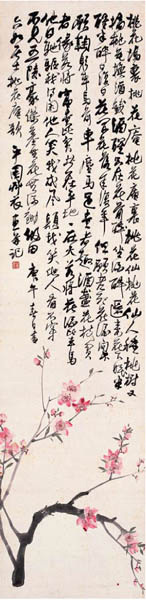 桃花塢裏桃花庵桃花庵裏桃花仙桃花仙人種桃樹又
摘桃花換酒錢酒醒只在花前坐酒醉還來花下眠半
醒半醉日復日花落花開年復年但願老死花酒間不
願鞠躬車馬前車塵馬足貴者趣酒盞花枝貧
者緣若將富貴比貧者一在平地一在天若將花酒比車馬
他得驅馳我得閑他人笑我忒風顛我笑他人看不穿
不見五陵豪傑墓無花無酒鋤作田 庚午春日書
六如居士桃花庵歌